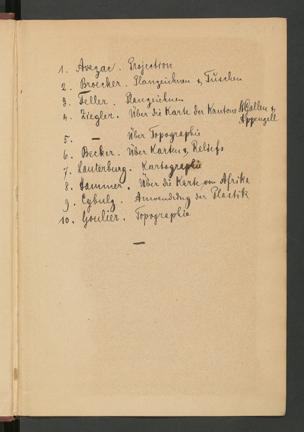 1. Avezac. Projection
2. Broecker. Planzeichnen & Tuschen
3. Feller. Planzeichnen
4. Ziegler. Über die Karte der Kantons St. Gallen & Appenzell
5. — Über Topographie
6. Becker. Über Karten & Reliefs
7. Lauterburg. Kartographie
8. Hammer. Über die Karte von Afrika
9. Egbulg. Anwendung der Plastik
10. Goulier. Topographie
—